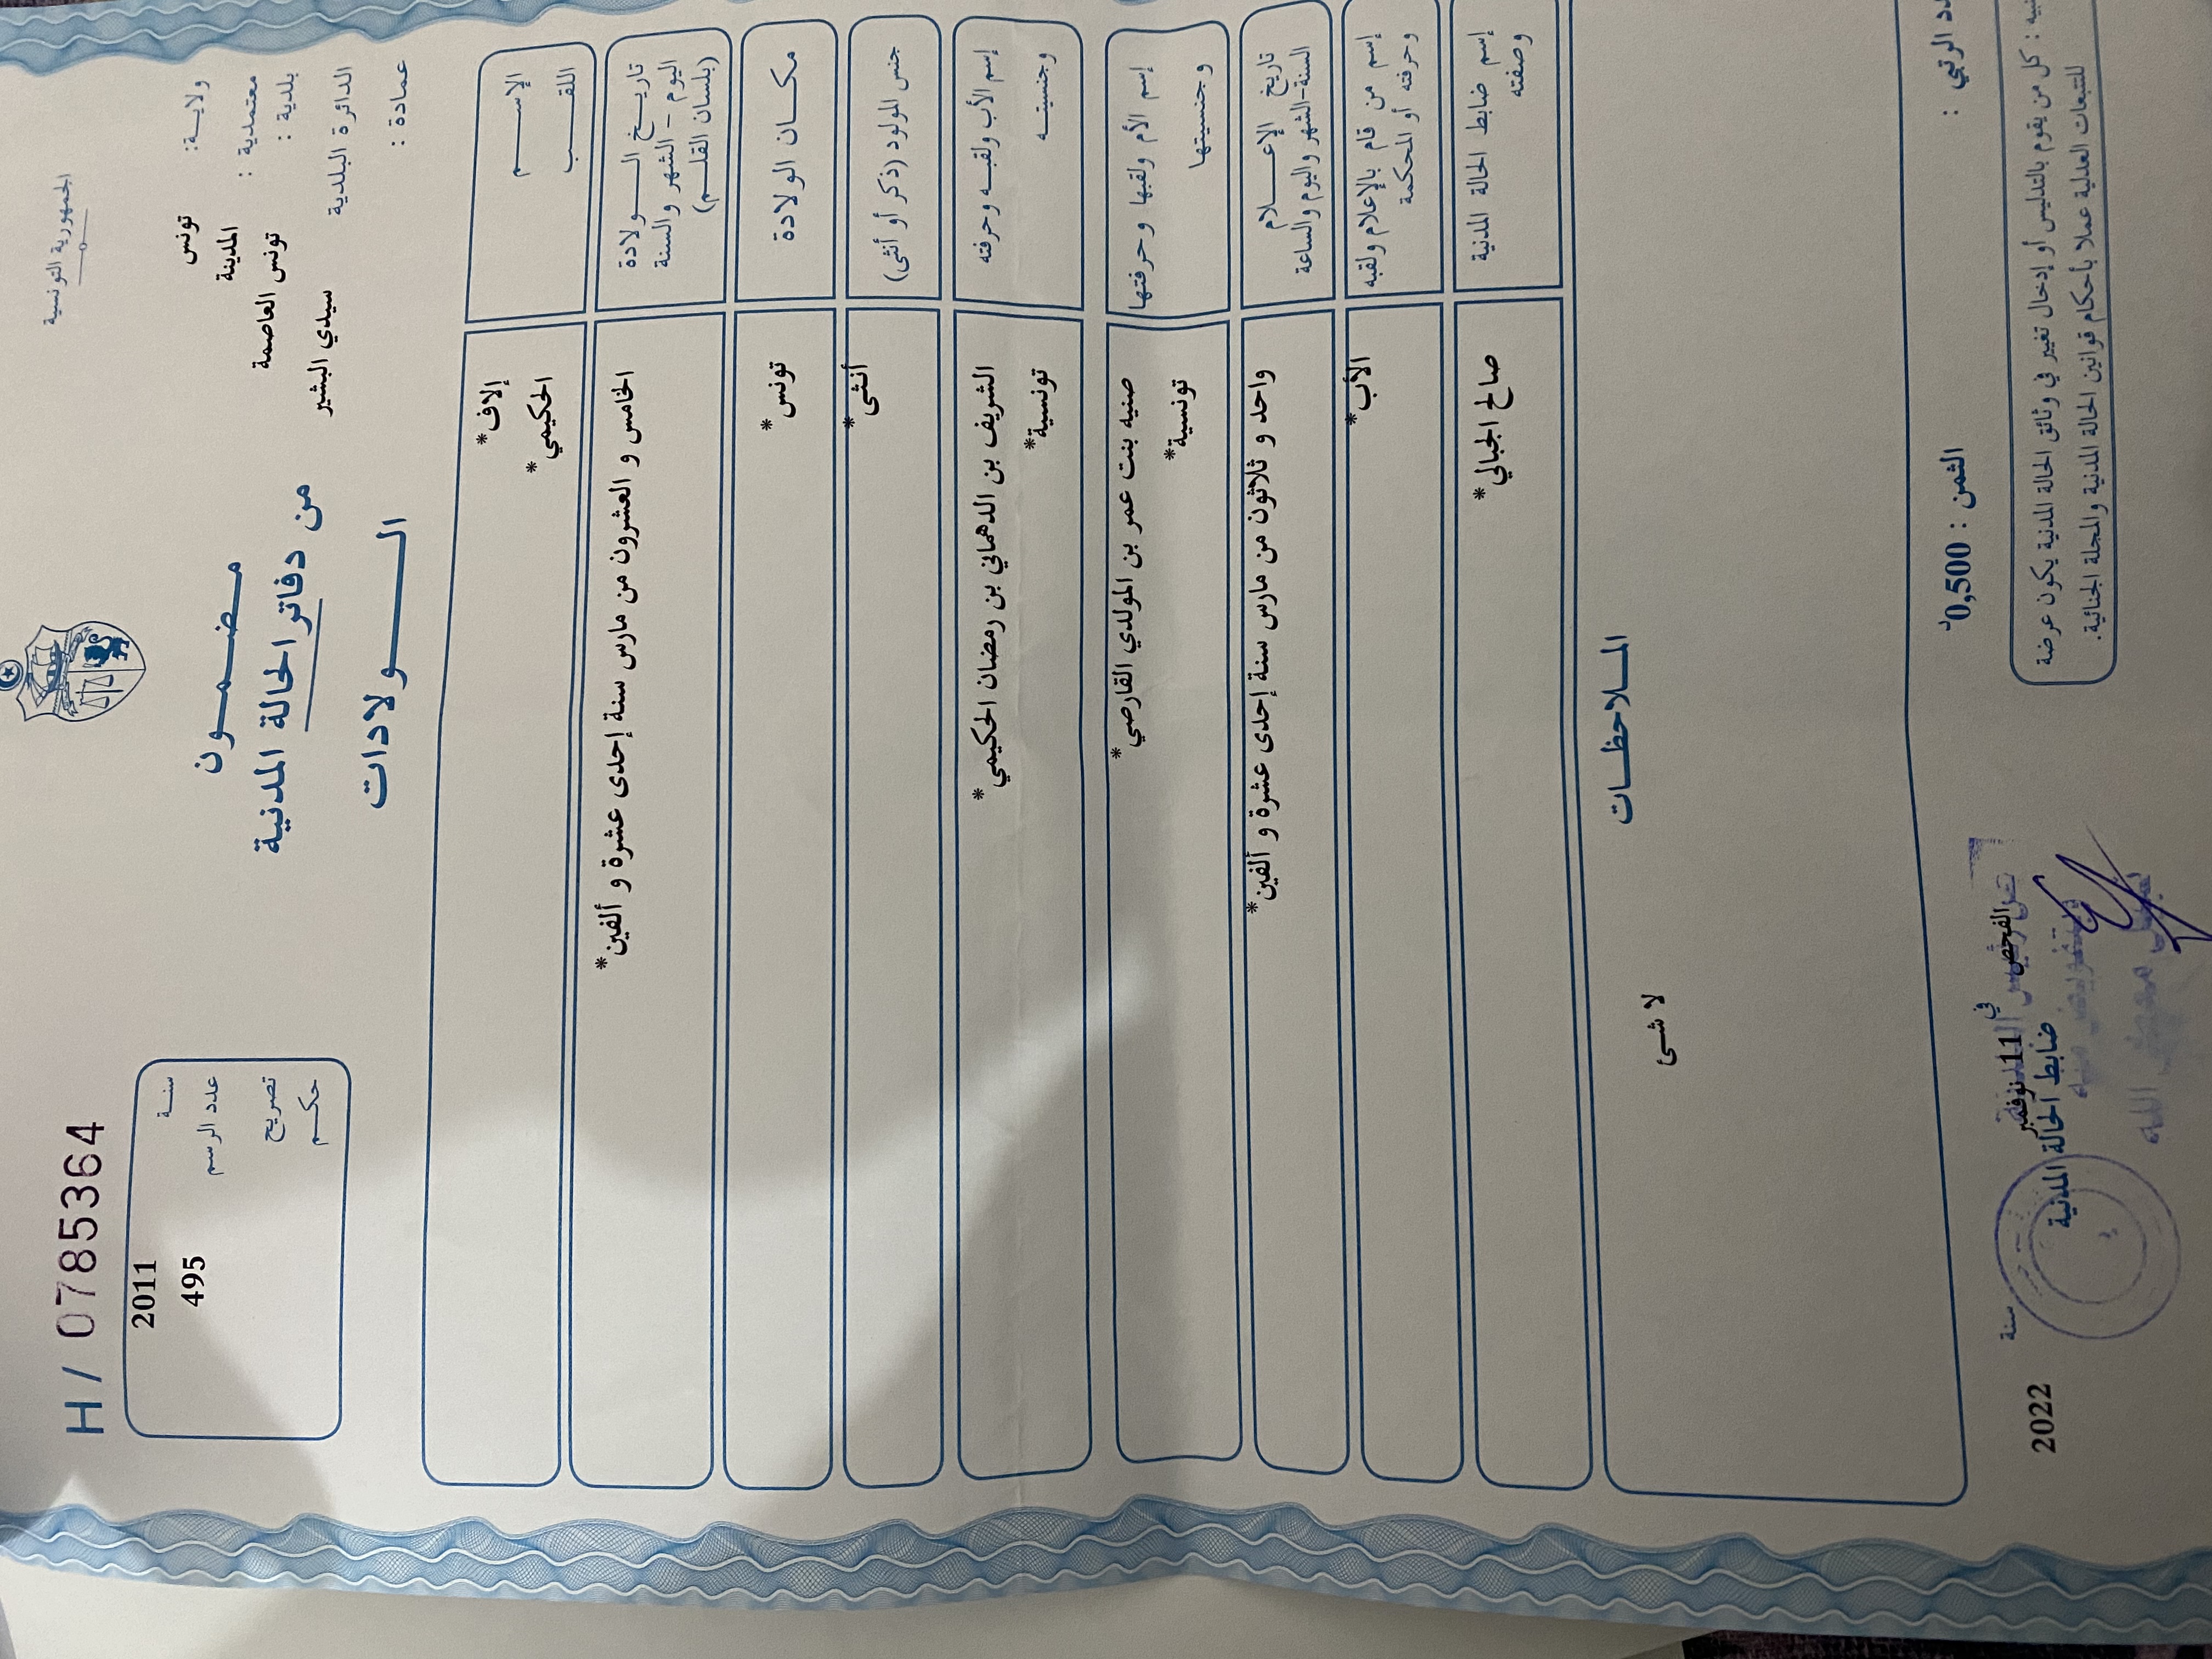 الجمهورية التونسية
H / 0785364
ولايــة: تونس
معتمدية : المدينة
بلدية : تونس العاصمة
الدائرة البلدية سيدي البشير
عمادة :
مضمــون
من دفاتر الحالة المدنية
الــولادات
سنــة 2011
عدد الرسم 495
تصريح
حكــم
الإســـم إلاف*
اللقــب الحكيمي*
تاريــخ الــولادة
اليوم - الشهر والسنة
(بلسان القلــم)
الخامس و العشرون من مارس سنة إحدى عشرة و ألفين*
مكــان الولادة تونس*
جنس المولود (ذكر أو أنثى) أنثى*
إسم الأب ولقبـه وحرفته الشريف بن الدهماني بن رمضان الحكيمي*
وجنسيتــه تونسية*
إسم الأم ولقبها وحرفتها صنيه بنت عمر بن المولدي القارصي*
وجنسيتها تونسية*
تاريخ الإعــلام
السنة-الشهر واليوم والساعة
واحد و ثلاثون من مارس سنة إحدى عشرة و ألفين*
إسم من قام بالإعلام ولقبه
وحرفته أو المحكمة
الأب*
إسم ضابط الحالة المدنية
وصفته
صالح الجبالي*
المــلاحظــات
لا شئ
الرتبي :
الثمن : 0,500د
في 11 نوفمبر سنة 2022
ضابط الحالة المدنية
: كل من يقوم بالتدليس أو إدخال تغيير في وثائق الحالة المدنية يكون عرضة
للتبعات العدلية عملا بأحكام قوانين الحالة المدنية والمجلة الجنائية.